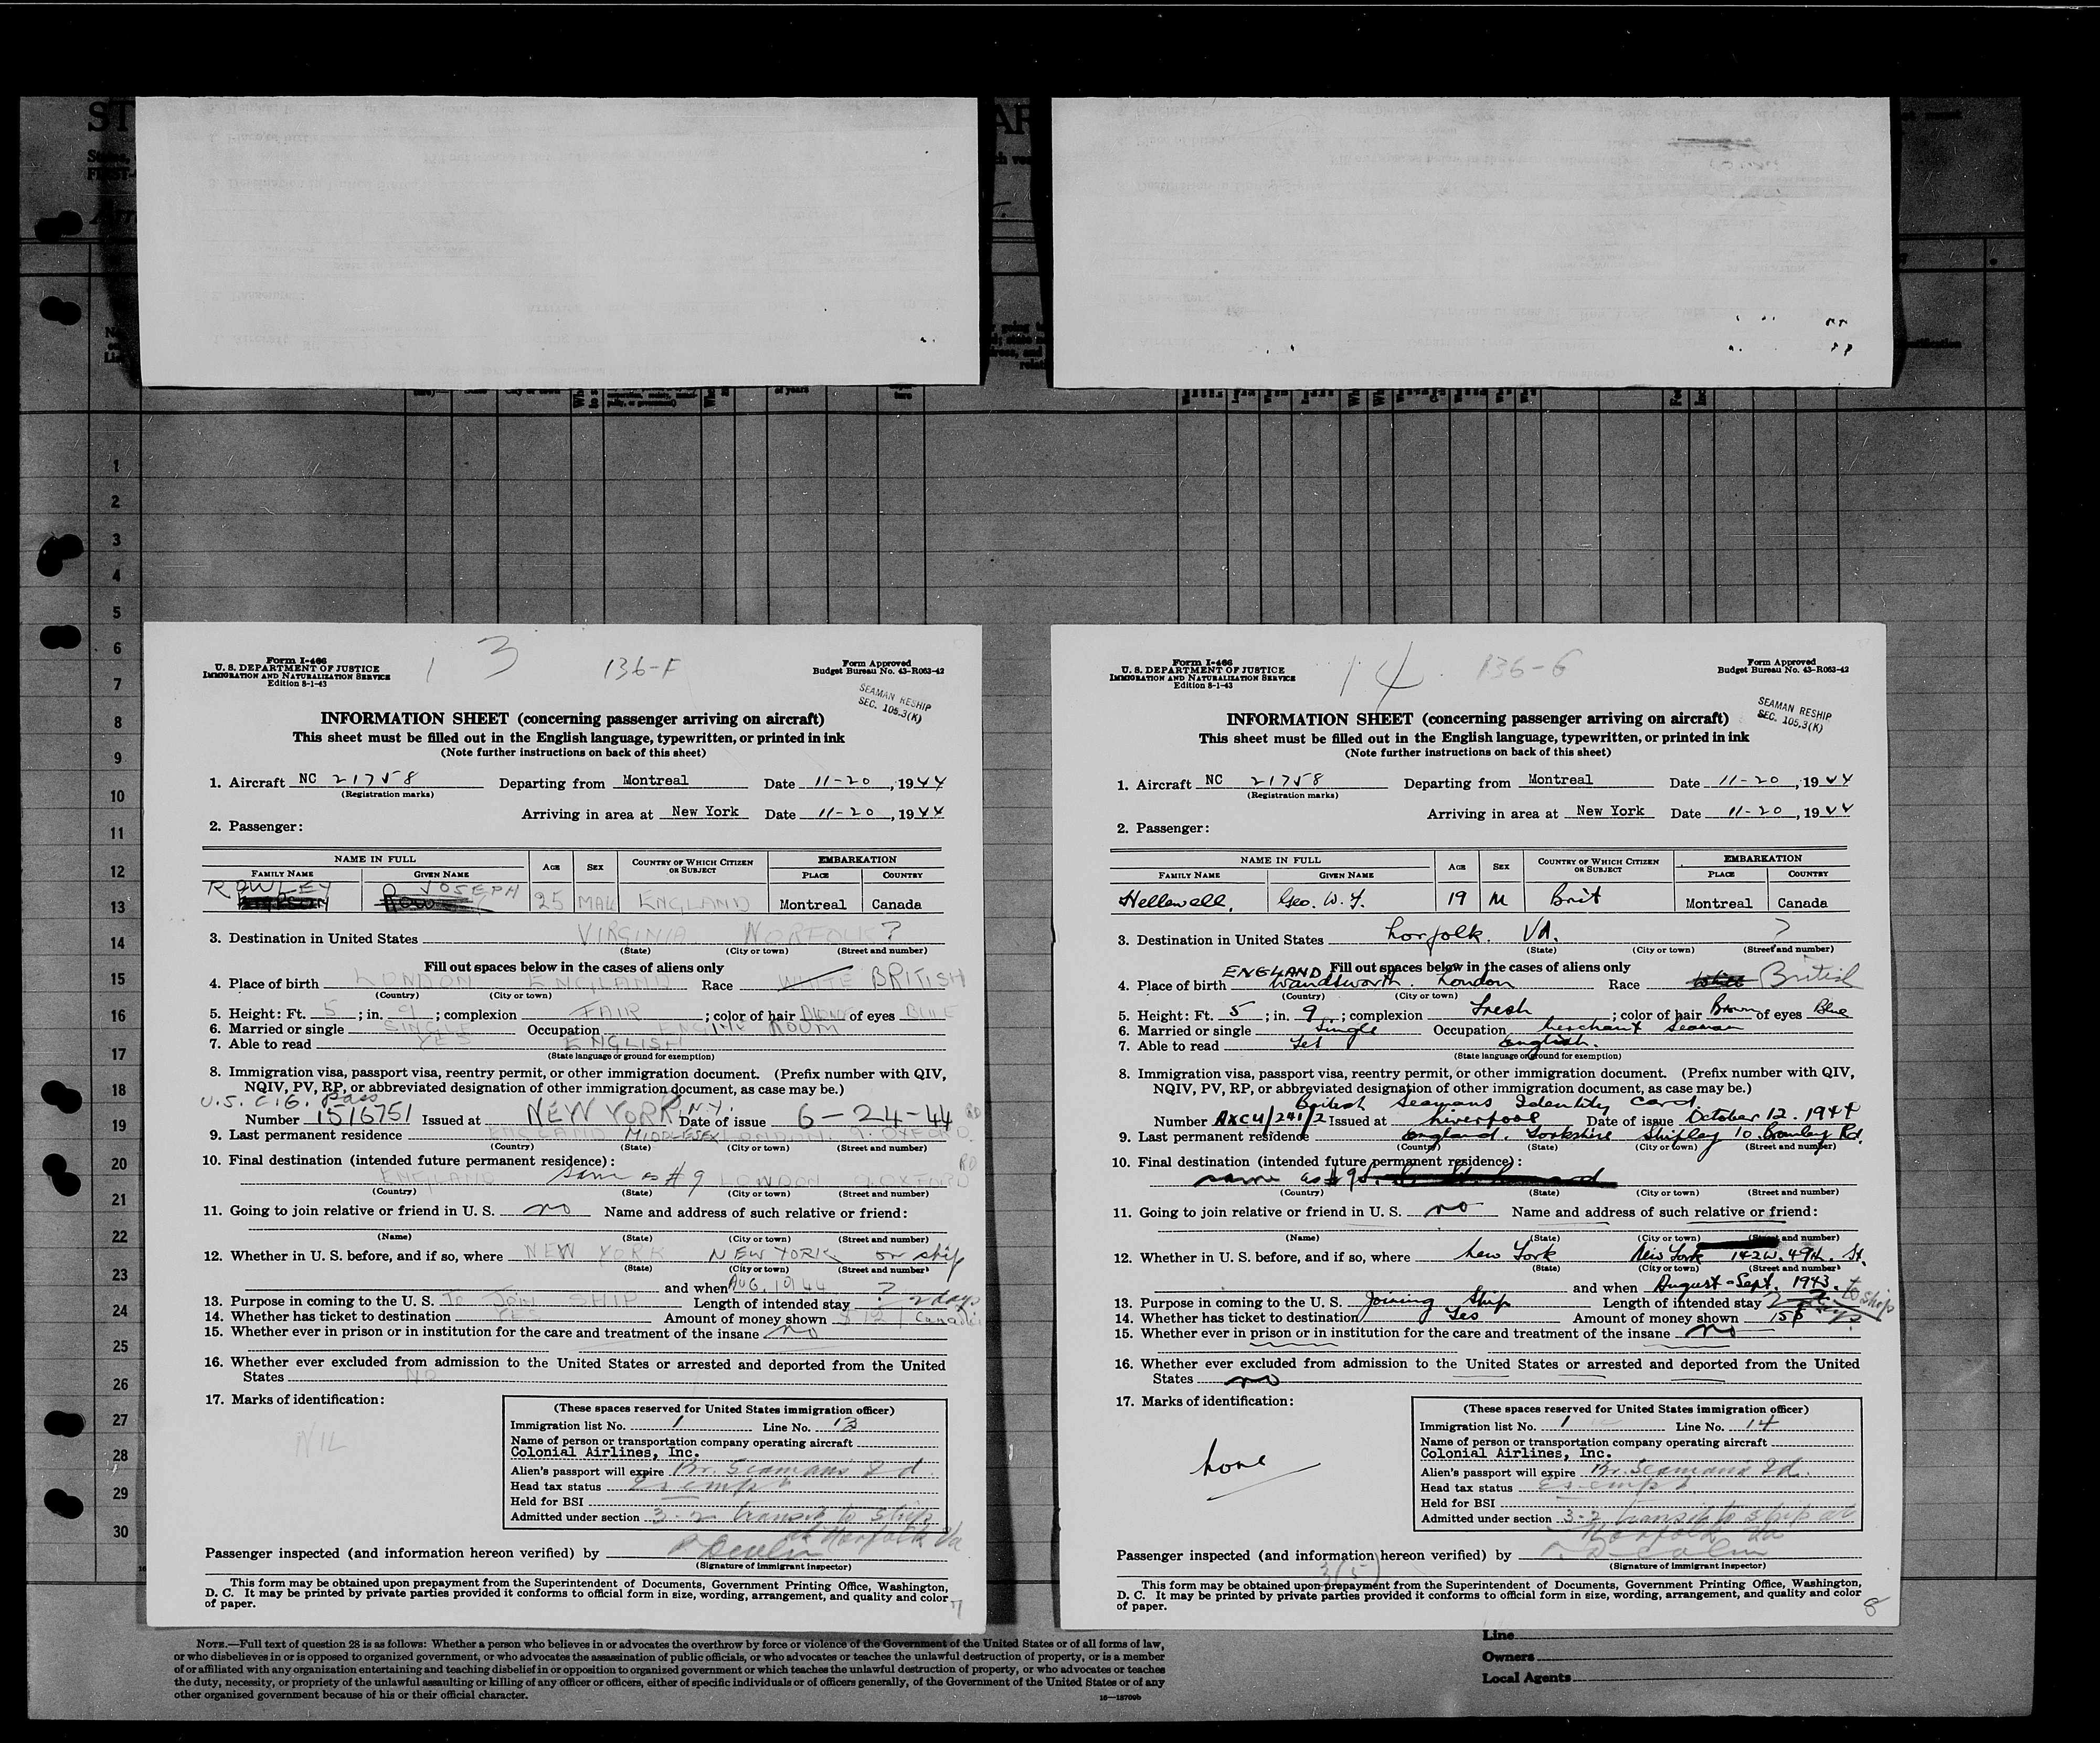 1
2
3
4
5
6
7
8
9
10
11
12
13
14
15
16
17
18
19
20
21
22
23
24
25
26
27
28
29
30
13 136-F
Form I-466
U. S. DEPARTMENT OF JUSTICE
IMMIGRATION AND NATURALIZATION SERVICE
Edition 8-1-43
Form Approved
Budget Bureau No. 43-R063-42
SEAMAN RESHIP
SEC. 105.3(K)
INFORMATION SHEET (concerning passenger arriving on aircraft)
This sheet must be filled out in the English language, typewritten, or printed in ink
(Note further instructions on back of this sheet)
1. Aircraft NC 21758 Departing from Montreal Date 11-20, 1944
(Registration marks)
Arriving in area at New York Date 11-20, 1944
2. Passenger:
NAME IN FULL AGE SEX COUNTRY OF WHICH CITIZEN OR SUBJECT EMBARKATION
FAMILY NAME GIVEN NAME PLACE COUNTRY
ROWLEY JOSEPH 25 MALE ENGLAND Montreal Canada
3. Destination in United States VIRGINIA NORFOLK ?
(State) (City or town) (Street and number)
Fill out spaces below in the cases of aliens only
4. Place of birth LONDON ENGLAND Race WHITE BRITISH
(Country) (City or town)
5. Height: Ft. 5 ; in. 9 ; complexion FAIR ; color of hair of eyes BLUE
6. Married or single SINGLE Occupation ENGINE ROOM
7. Able to read YES ENGLISH
(State language or ground for exemption)
8. Immigration visa, passport visa, reentry permit, or other immigration document. (Prefix number with QIV,
NQIV, PV, RP, or abbreviated designation of other immigration document, as case may be.)
U.S. C.G. Pass
Number 1516751 Issued at NEW YORK N.Y. Date of issue 6-24-44
9. Last permanent residence ENGLAND MIDDLESEX LONDON 9. OXFORD RD
(Country) (State) (City or town) (Street and number)
10. Final destination (intended future permanent residence):
ENGLAND same as #9 LONDON 9. OXFORD RD
(Country) (State) (City or town) (Street and number)
11. Going to join relative or friend in U. S. no Name and address of such relative or friend:
(Name) (State) (City or town) (Street and number)
12. Whether in U. S. before, and if so, where NEW YORK NEW YORK on ship
(State) (City or town) (Street and number)
and when AUG. 1944
13. Purpose in coming to the U. S. To JOIN SHIP Length of intended stay ? 2 days
14. Whether has ticket to destination YES Amount of money shown $12 Canadian
15. Whether ever in prison or in institution for the care and treatment of the insane no
16. Whether ever excluded from admission to the United States or arrested and deported from the United
States NO
17. Marks of identification:
NIL
(These spaces reserved for United States immigration officer)
Immigration list No. 1 Line No. 13
Name of person or transportation company operating aircraft
Colonial Airlines, Inc.
Alien's passport will expire Br. Seamans Id.
Head tax status Exempt
Held for BSI
Admitted under section 3-2 transit to ship
at Norfolk Va
Passenger inspected (and information hereon verified) by
(Signature of immigrant inspector)
This form may be obtained upon prepayment from the Superintendent of Documents, Government Printing Office, Washington,
D. C. It may be printed by private parties provided it conforms to official form in size, wording, arrangement, and quality and color
of paper.
7
14 136-G
Form I-466
U. S. DEPARTMENT OF JUSTICE
IMMIGRATION AND NATURALIZATION SERVICE
Edition 8-1-43
Form Approved
Budget Bureau No. 43-R063-42
SEAMAN RESHIP
SEC. 105.3(K)
INFORMATION SHEET (concerning passenger arriving on aircraft)
This sheet must be filled out in the English language, typewritten, or printed in ink
(Note further instructions on back of this sheet)
1. Aircraft NC 21758 Departing from Montreal Date 11-20, 1944
(Registration marks)
Arriving in area at New York Date 11-20, 1944
2. Passenger:
NAME IN FULL AGE SEX COUNTRY OF WHICH CITIZEN OR SUBJECT EMBARKATION
FAMILY NAME GIVEN NAME PLACE COUNTRY
Hellewell, Geo. W. F. 19 M Brit Montreal Canada
3. Destination in United States Norfolk. VA. ?
(State) (City or town) (Street and number)
Fill out spaces below in the cases of aliens only
ENGLAND
4. Place of birth Wandsworth. London Race White British
(Country) (City or town)
5. Height: Ft. 5 ; in. 9 ; complexion Fresh ; color of hair Brown of eyes Blue
6. Married or single Single Occupation Merchant Seaman
7. Able to read Yes English.
(State language or ground for exemption)
8. Immigration visa, passport visa, reentry permit, or other immigration document. (Prefix number with QIV,
NQIV, PV, RP, or abbreviated designation of other immigration document, as case may be.)
British Seamans Identity Card.
Number AXC4/241/2 Issued at Liverpool Date of issue October 12. 1944
9. Last permanent residence England. Yorkshire Shipley 10. Bromley Rd.
(Country) (State) (City or town) (Street and number)
10. Final destination (intended future permanent residence):
same as #9
(Country) (State) (City or town) (Street and number)
11. Going to join relative or friend in U. S. no Name and address of such relative or friend:
(Name) (State) (City or town) (Street and number)
12. Whether in U. S. before, and if so, where New York New York 142 W. 49th. St.
(State) (City or town) (Street and number)
and when August-Sept. 1943.
13. Purpose in coming to the U. S. Joining Ship Length of intended stay to ship
14. Whether has ticket to destination Yes Amount of money shown 15$
15. Whether ever in prison or in institution for the care and treatment of the insane no
16. Whether ever excluded from admission to the United States or arrested and deported from the United
States no
17. Marks of identification:
None
(These spaces reserved for United States immigration officer)
Immigration list No. 1 Line No. 14
Name of person or transportation company operating aircraft
Colonial Airlines, Inc.
Alien's passport will expire Br. Seamans Id.
Head tax status Exempt
Held for BSI
Admitted under section 3-2 transit to ship at
Norfolk Va
Passenger inspected (and information hereon verified) by
(Signature of immigrant inspector)
3(5)
This form may be obtained upon prepayment from the Superintendent of Documents, Government Printing Office, Washington,
D. C. It may be printed by private parties provided it conforms to official form in size, wording, arrangement, and quality and color
of paper.
8
NOTE.—Full text of question 28 is as follows: Whether a person who believes in or advocates the overthrow by force or violence of the Government of the United States or of all forms of law,
or who disbelieves in or is opposed to organized government, or who advocates the assassination of public officials, or who advocates or teaches the unlawful destruction of property, or is a member
of or affiliated with any organization entertaining and teaching disbelief in or opposition to organized government or which teaches the unlawful destruction of property, or who advocates or teaches
the duty, necessity, or propriety of the unlawful assaulting or killing of any officer or officers, either of specific individuals or of officers generally, of the Government of the United States or of any
other organized government because of his or their official character.
16—18700b
Line
Owners
Local Agents